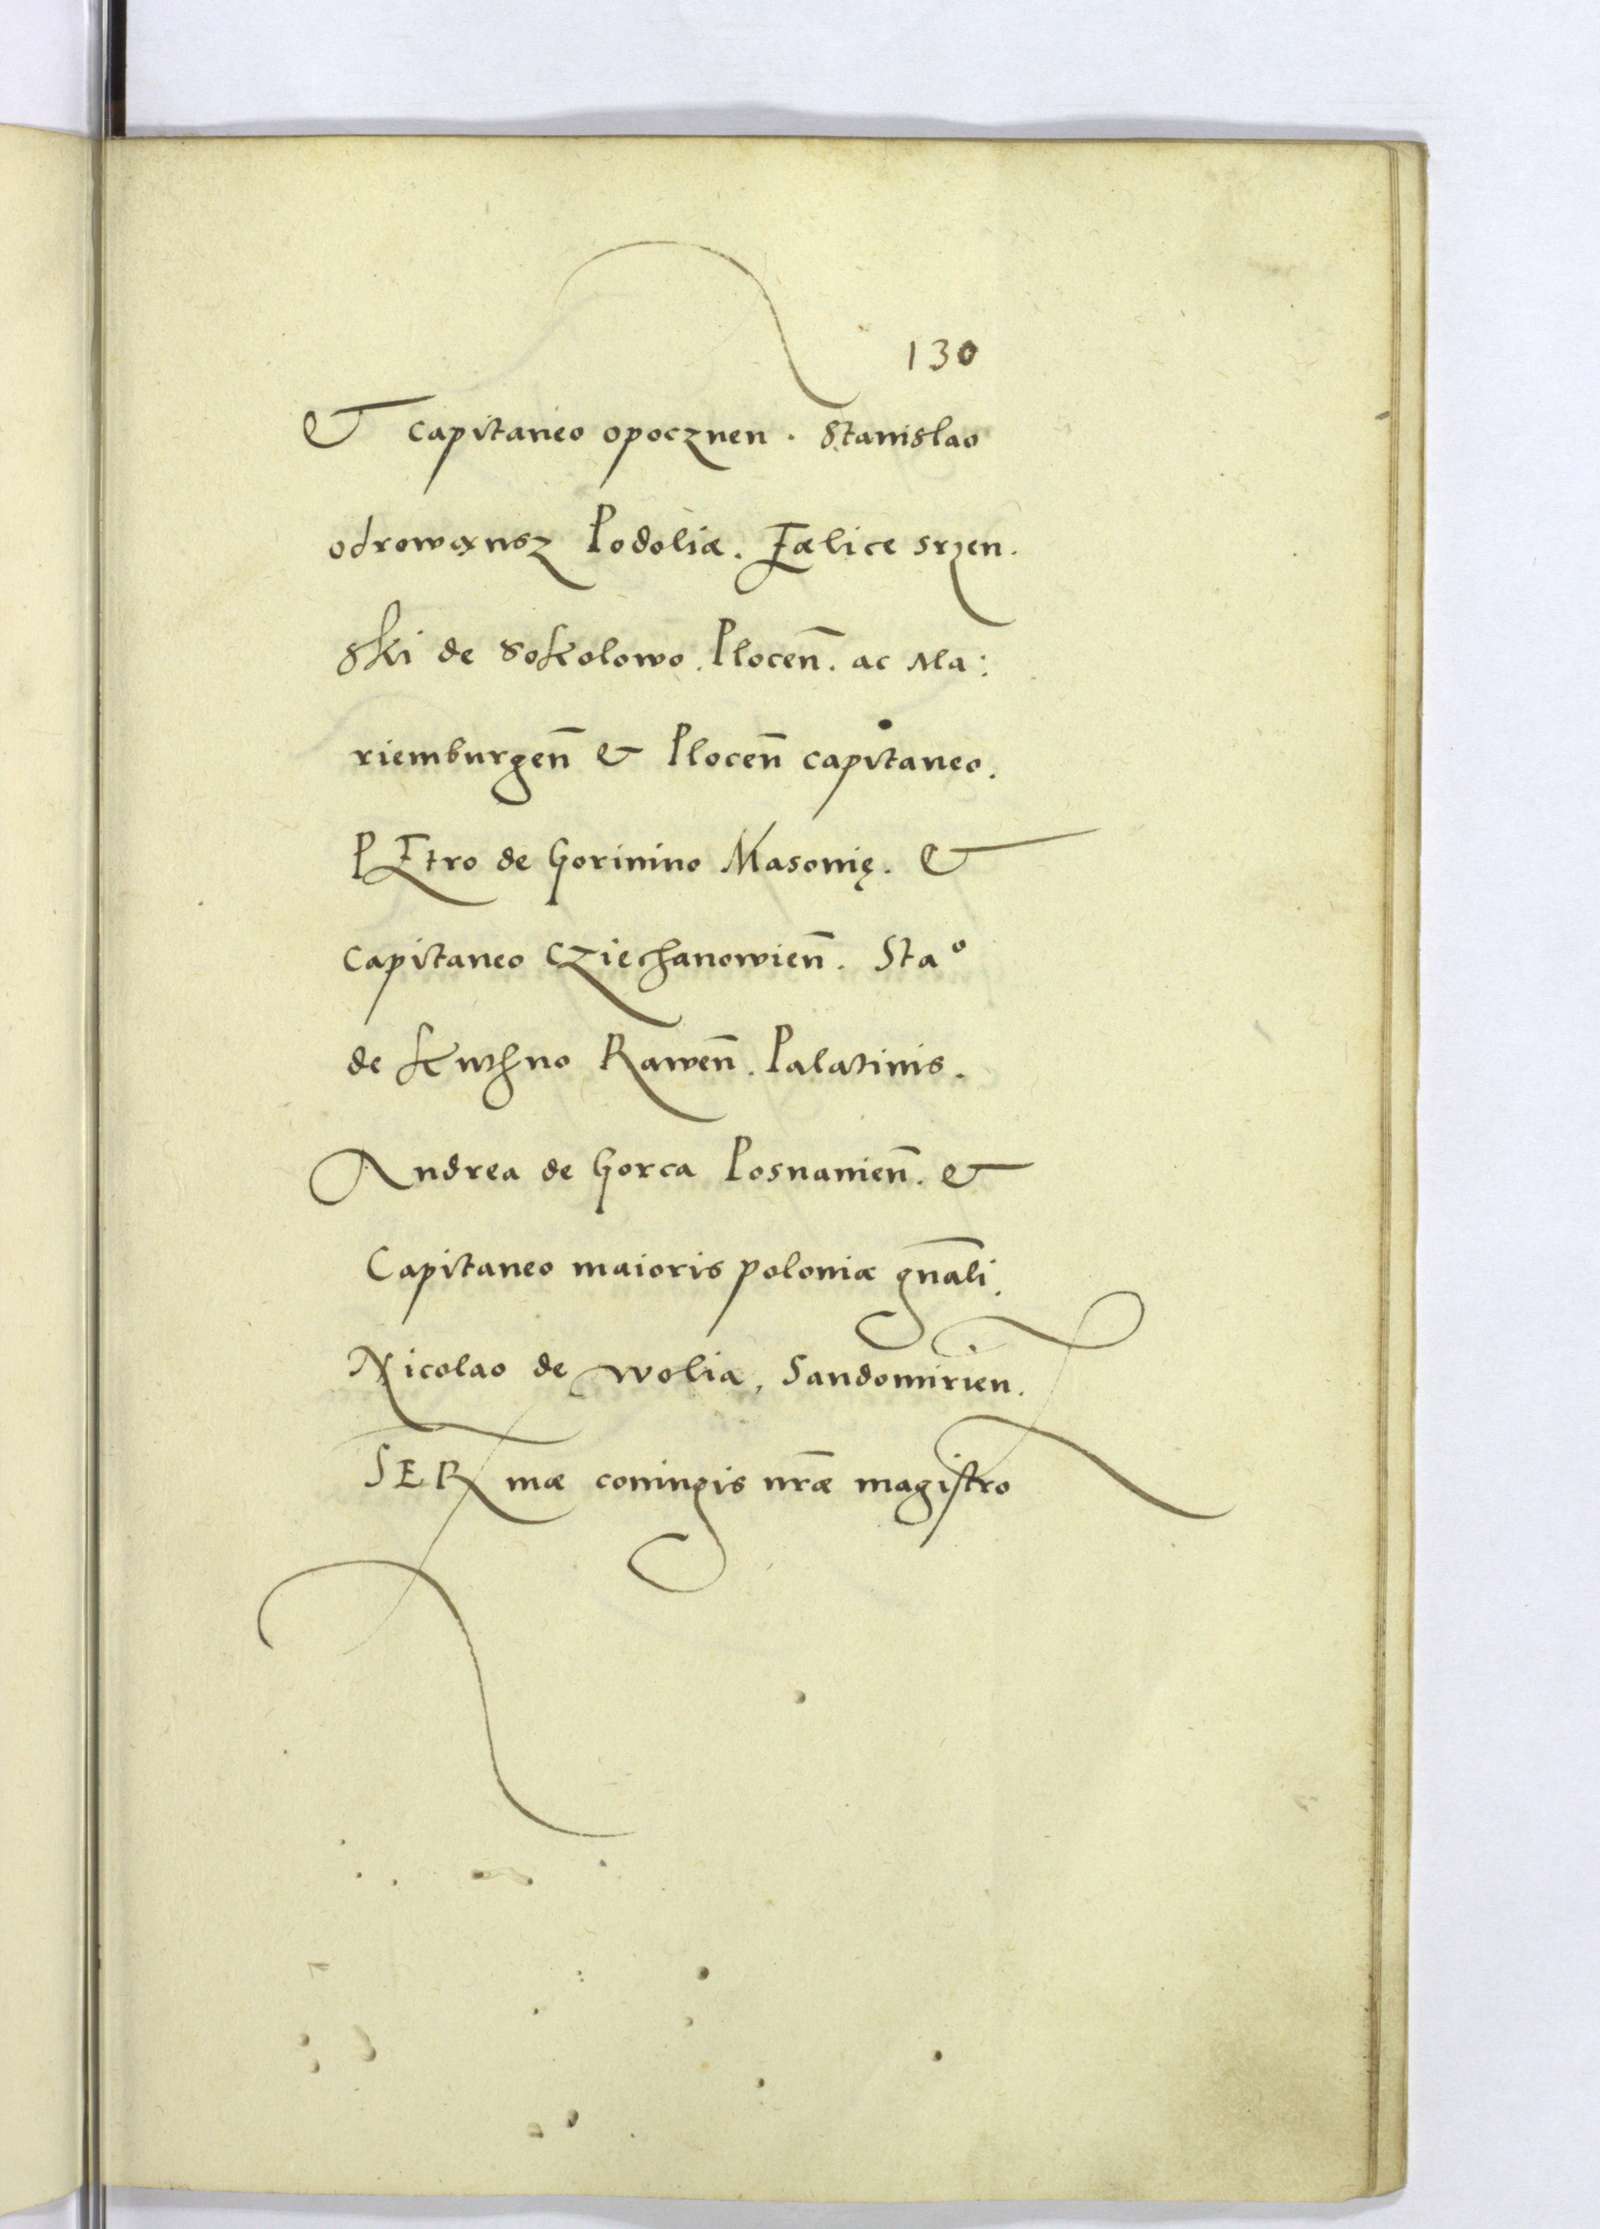 130
& capitaneo opocznen. Stanislao
odrowansz Podoliæ. Fælice srzen.
ski de Sokolowo. Plocen̄. ac Ma:
riemburgen̄ & Plocen̄ capitaneo.
PEtro de Gorinino Masoniȩ. &
capitaneo Cziechanowien̄. Staº
de kuthno Rawen̄. Palatinis.
Andrea de Gorca Posnanien̄. &
Capitaneo maioris poloniæ gn̄ali.
Nicolao de wolia, Sandomirien.
SER mæ coniugis nr̄æ magistro